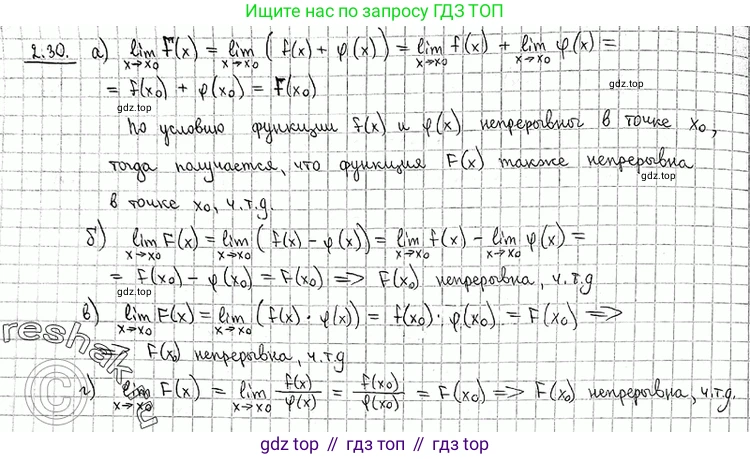 Ищите нас по запросу ГДЗ ТОП
2.30. а) lim x→x₀ F(x) = lim x→x₀ (f(x) + φ(x)) = lim x→x₀ f(x) + lim x→x₀ φ(x) =
= f(x₀) + φ(x₀) = F(x₀)
gdz.top
gdz.top
По условию функции f(x) и φ(x) непрерывны в точке x₀,
тогда получается, что функция F(x) также непрерывна
gdz.top
в точке x₀, ч.т.д.
б) lim x→x₀ F(x) = lim x→x₀ (f(x) - φ(x)) = lim x→x₀ f(x) - lim x→x₀ φ(x) =
= f(x₀) - φ(x₀) = F(x₀) => F(x₀) непрерывна, ч.т.д
gdz.top
в) lim x→x₀ F(x) = lim x→x₀ (f(x) · φ(x)) = f(x₀) · φ(x₀) = F(x₀) =>
=> F(x₀) непрерывна, ч.т.д
г) lim x→x₀ F(x) = lim x→x₀ f(x)/φ(x) = f(x₀)/φ(x₀) = F(x₀) => F(x₀) непрерывна, ч.т.д.
reshak
©
gdz top // гдз топ // gdz.top